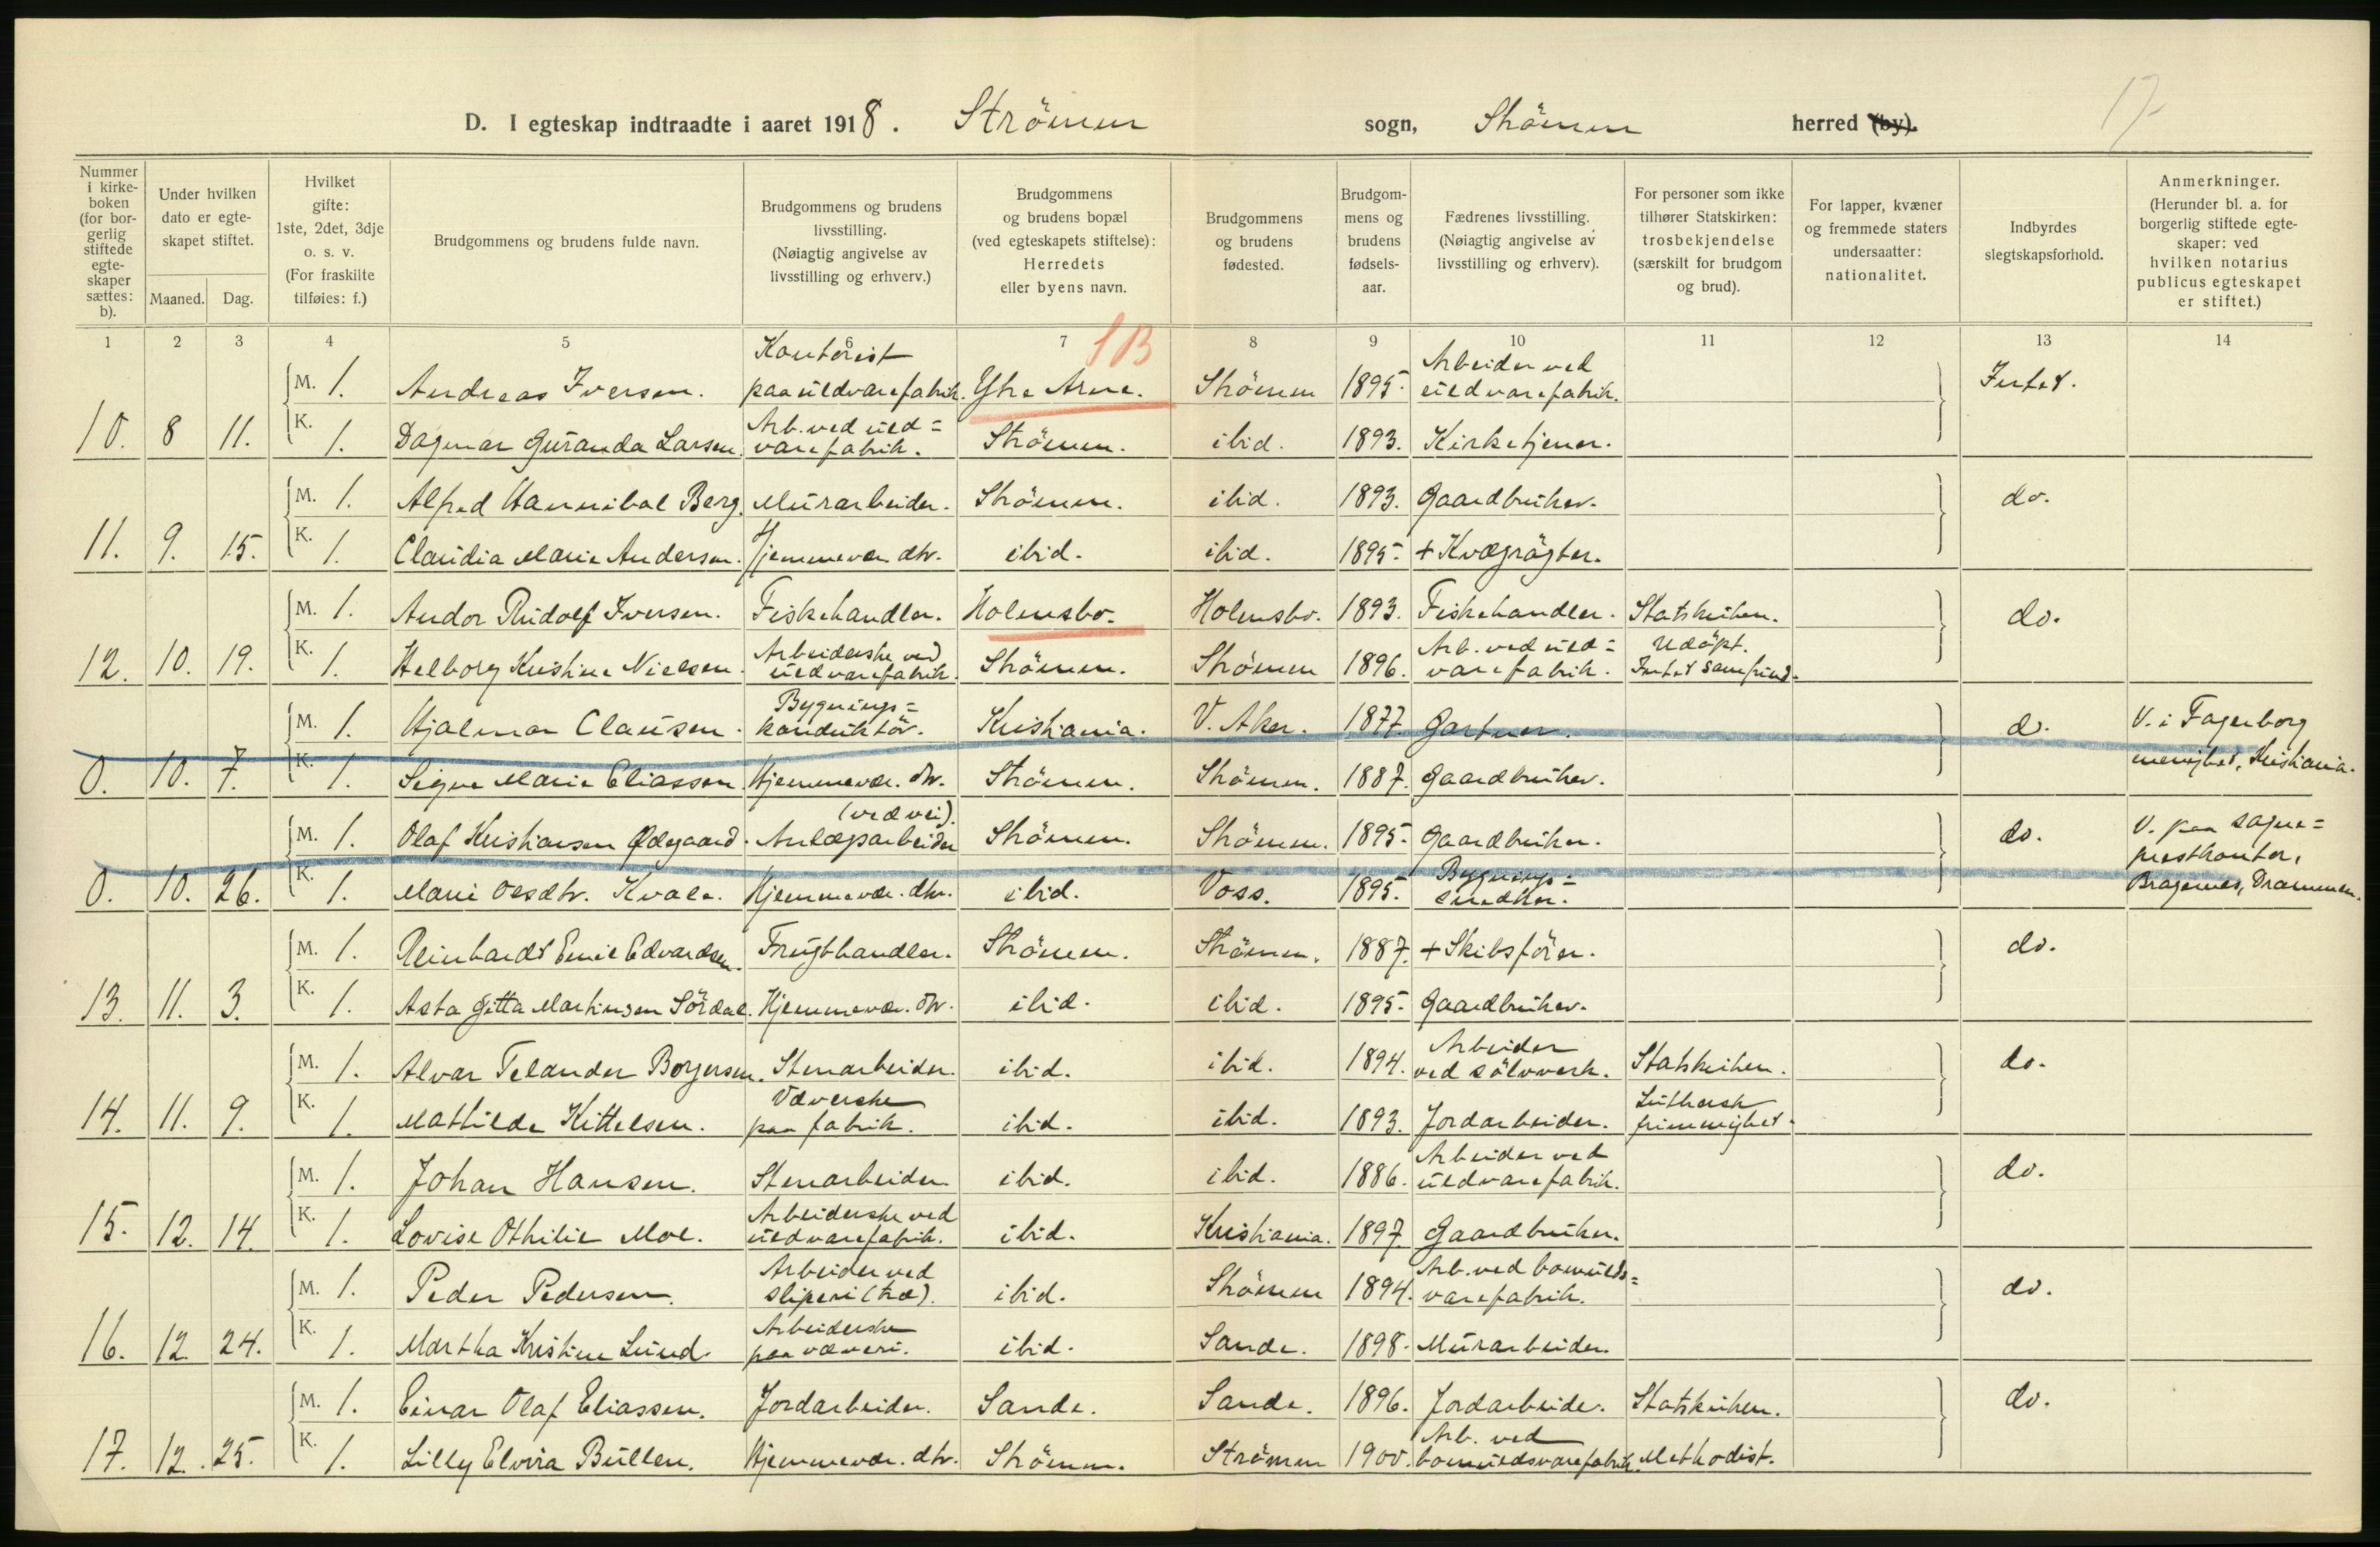 17
D. I egteskap indtraadte i aaret 1918. Strömm sogn, Strömm herred (by).
Nummer i kirkeboken (for borgerlig stiftede egteskaper sættes: b). | Under hvilken dato er egteskapet stiftet. Maaned. Dag. | Hvilket gifte: 1ste, 2det, 3dje o. s. v. (For fraskilte tilføies: f.) | Brudgommens og brudens fulde navn. | Brudgommens og brudens livsstilling. (Nøiagtig angivelse av livsstilling og erhverv.) | Brudgommens og brudens bopæl (ved egteskapets stiftelse): Herredets eller byens navn. | Brudgommens og brudens fødested. | Brudgommens og brudens fødselsaar. | Fædrenes livsstilling. (Nøiagtig angivelse av livsstilling og erhverv). | For personer som ikke tilhører Statskirken: trosbekjendelse (særskilt for brudgom og brud). | For lapper, kvæner og fremmede staters undersaatter: nationalitet. | Indbyrdes slegtskapsforhold. | Anmerkninger. (Herunder bl. a. for borgerlig stiftede egteskaper: ved hvilken notarius publicus egteskapet er stiftet.)
1 2 3 4 5 6 7 8 9 10 11 12 13 14
M. 1. Andreas Iversen. Kontorist paa uldvarefabrik. Ytre Arne. Strömm 1895. Arbeider ved uldvarefabrik. Intet.
10. 8 11. K. 1. Dagmar Guranda Larsen. Arb. ved uld=varefabrik. Strömm. ibid. 1893. Kirketjener.
M. 1. Alfred Hannibal Berg. Murarbeider. Strömm. ibid. 1893. Gaardbruker. do.
11. 9. 15. K. 1. Claudia Marie Andersen. Hjemmevær. dtr. ibid. ibid. 1895. + Kvægrögter.
M. 1. Andor Rudolf Iversen. Fiskehandler. Holmsbo. Holmsbo. 1893. Fiskehandler. Statskirken. do.
12. 10. 19. K. 1. Helborg Kristine Nielsen. Arbeiderske ved uldvarefabrik. Strömm. Strömm 1896. Arb. ved uld=varefabrik. Udöpt. Intet samfund.
M. 1. Hjalmar Clausen. Bygnings=konduktör. Kristiania. V. Aker. 1877. Gartner. do. V. i Fagerborg
0. 10. 7. K. 1. Signe Marie Eliassen Hjemmevær. dtr. Strömm. Strömm. 1887. Gaardbruker. menighet, Kristiania.
M. 1. Olaf Kristiansen Ødegaard. (ved vei). Anlægsarbeider Strömm. Strömm. 1895. Gaardbruker. do. V. paa sogne=prestkontor,
0. 10. 26. K. 1. Marie Olsdtr. Kvale. Hjemmevær. dtr. ibid. Voss. 1895. Bygnings= Bragernes, Drammen.
M. 1. Reinhardt Emil Edvardsen. Frugthandler. Strömm. Strömm. 1887. + Skibsförer. do.
13. 11. 3. K. 1. Asta Gitta Martinsen Sördal. Hjemmevær. dtr. ibid. ibid. 1895. Gaardbruker.
M. 1. Alvar Telander Borgersen. Stenarbeider. ibid. ibid. 1894. Arbeider ved sölvverk. Statskirken. do.
14. 11. 9. K. 1. Mathilde Kittelsen. Væverske paa fabrik. ibid. ibid. 1893. Jordarbeider. Luthersk frimenighet.
M. 1. Johan Hansen. Stenarbeider ibid. ibid. 1886. Arbeider ved uldvarefabrik. do.
15. 12. 14. K. 1. Lovise Othilie Moe. Arbeiderske ved uldvarefabrik. ibid. Kristiania. 1897. Gaardbruker.
M. 1. Peder Pedersen. Arbeider ved sliperi (træ). ibid. Strömm 1894. Arb. ved bomulds=varefabrik. do.
16. 12 24. K. 1. Martha Kristine Lund. Arbeiderske paa væveri. ibid. Sande. 1898. Murarbeider
M. 1. Einar Olaf Eliassen. Jordarbeider. Sande. Sande. 1896. Jordarbeider. Statskirken. do.
17. 12. 25. K. 1. Lilly Elvira Bullen. Hjemmevær. dtr. Strömm. Strömm 1900. Arb. ved bomuldsvarefabrik. Methodist.